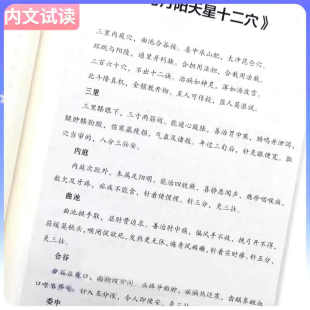 内文试读
丹阳天星十二穴》
三里内庭穴，曲池合谷接，委中承山配，太冲昆仑穴，
环跳与阳陵，通里并列缺。合担用法担，合截用法截，
三百六十穴，不出十二诀。治病如神灵，浑如汤泼雪，
北斗降真机，金锁教开彻，至人可传授，匪人莫浪说。
三里
三里膝眼下，三寸两筋间。能通心腹胀，善治胃中寒，肠鸣并泄泻，
腿肿膝胻酸，伤寒羸瘦损，气蛊及诸般。年过三旬后，针灸眼便宽。取
穴当审的，八分三壮安。
内庭
内庭次趾外，本属足阳明。能治四肢厥，喜静恶闻声，瘾疹咽喉痛，
数欠及牙疼，疟疾不能食，针着便惺惺。针三分，灸三壮。
曲池
曲池拱手取，屈肘骨边求。善治肘中痛，偏风手不收，挽弓开不得，
筋缓莫梳头，喉闭促欲死，发热更无休，遍身风癣癞，针着实时瘳。针五分，
灸三壮。
合谷
委中